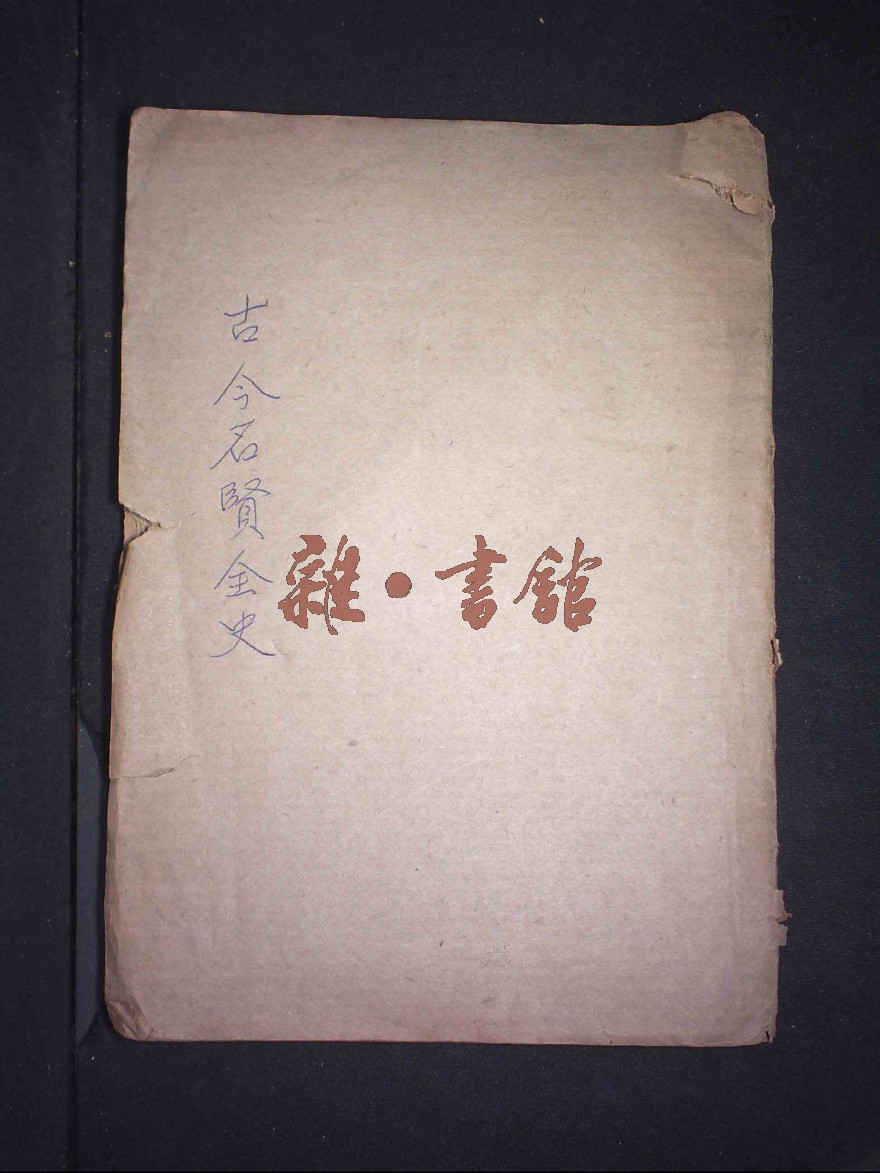 古今名賢全史
雜·書館